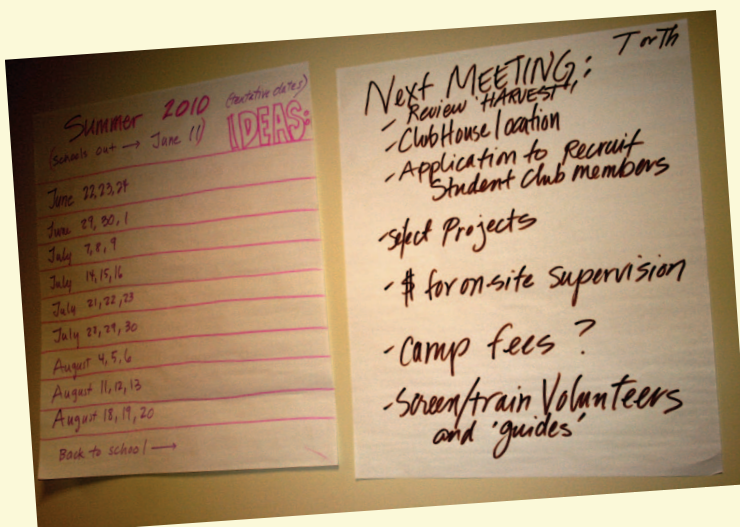 Summer 2010 (tentative dates)
(schools out → June 11) IDEAS:
June 22,23,24
June 29, 30, 1
July 7, 8, 9
July 14, 15, 16
July 21, 22, 23
July 28, 29, 30
August 4, 5, 6
August 11, 12, 13
August 18, 19, 20
Back to school →
T or Th
Next MEETING:
- Review 'HARVEST'
- ClubHouse location
- Application to Recruit
Student Club members
- select Projects
- $ for on-site Supervision
- Camp fees ?
- Screen/train Volunteers
and 'guides'